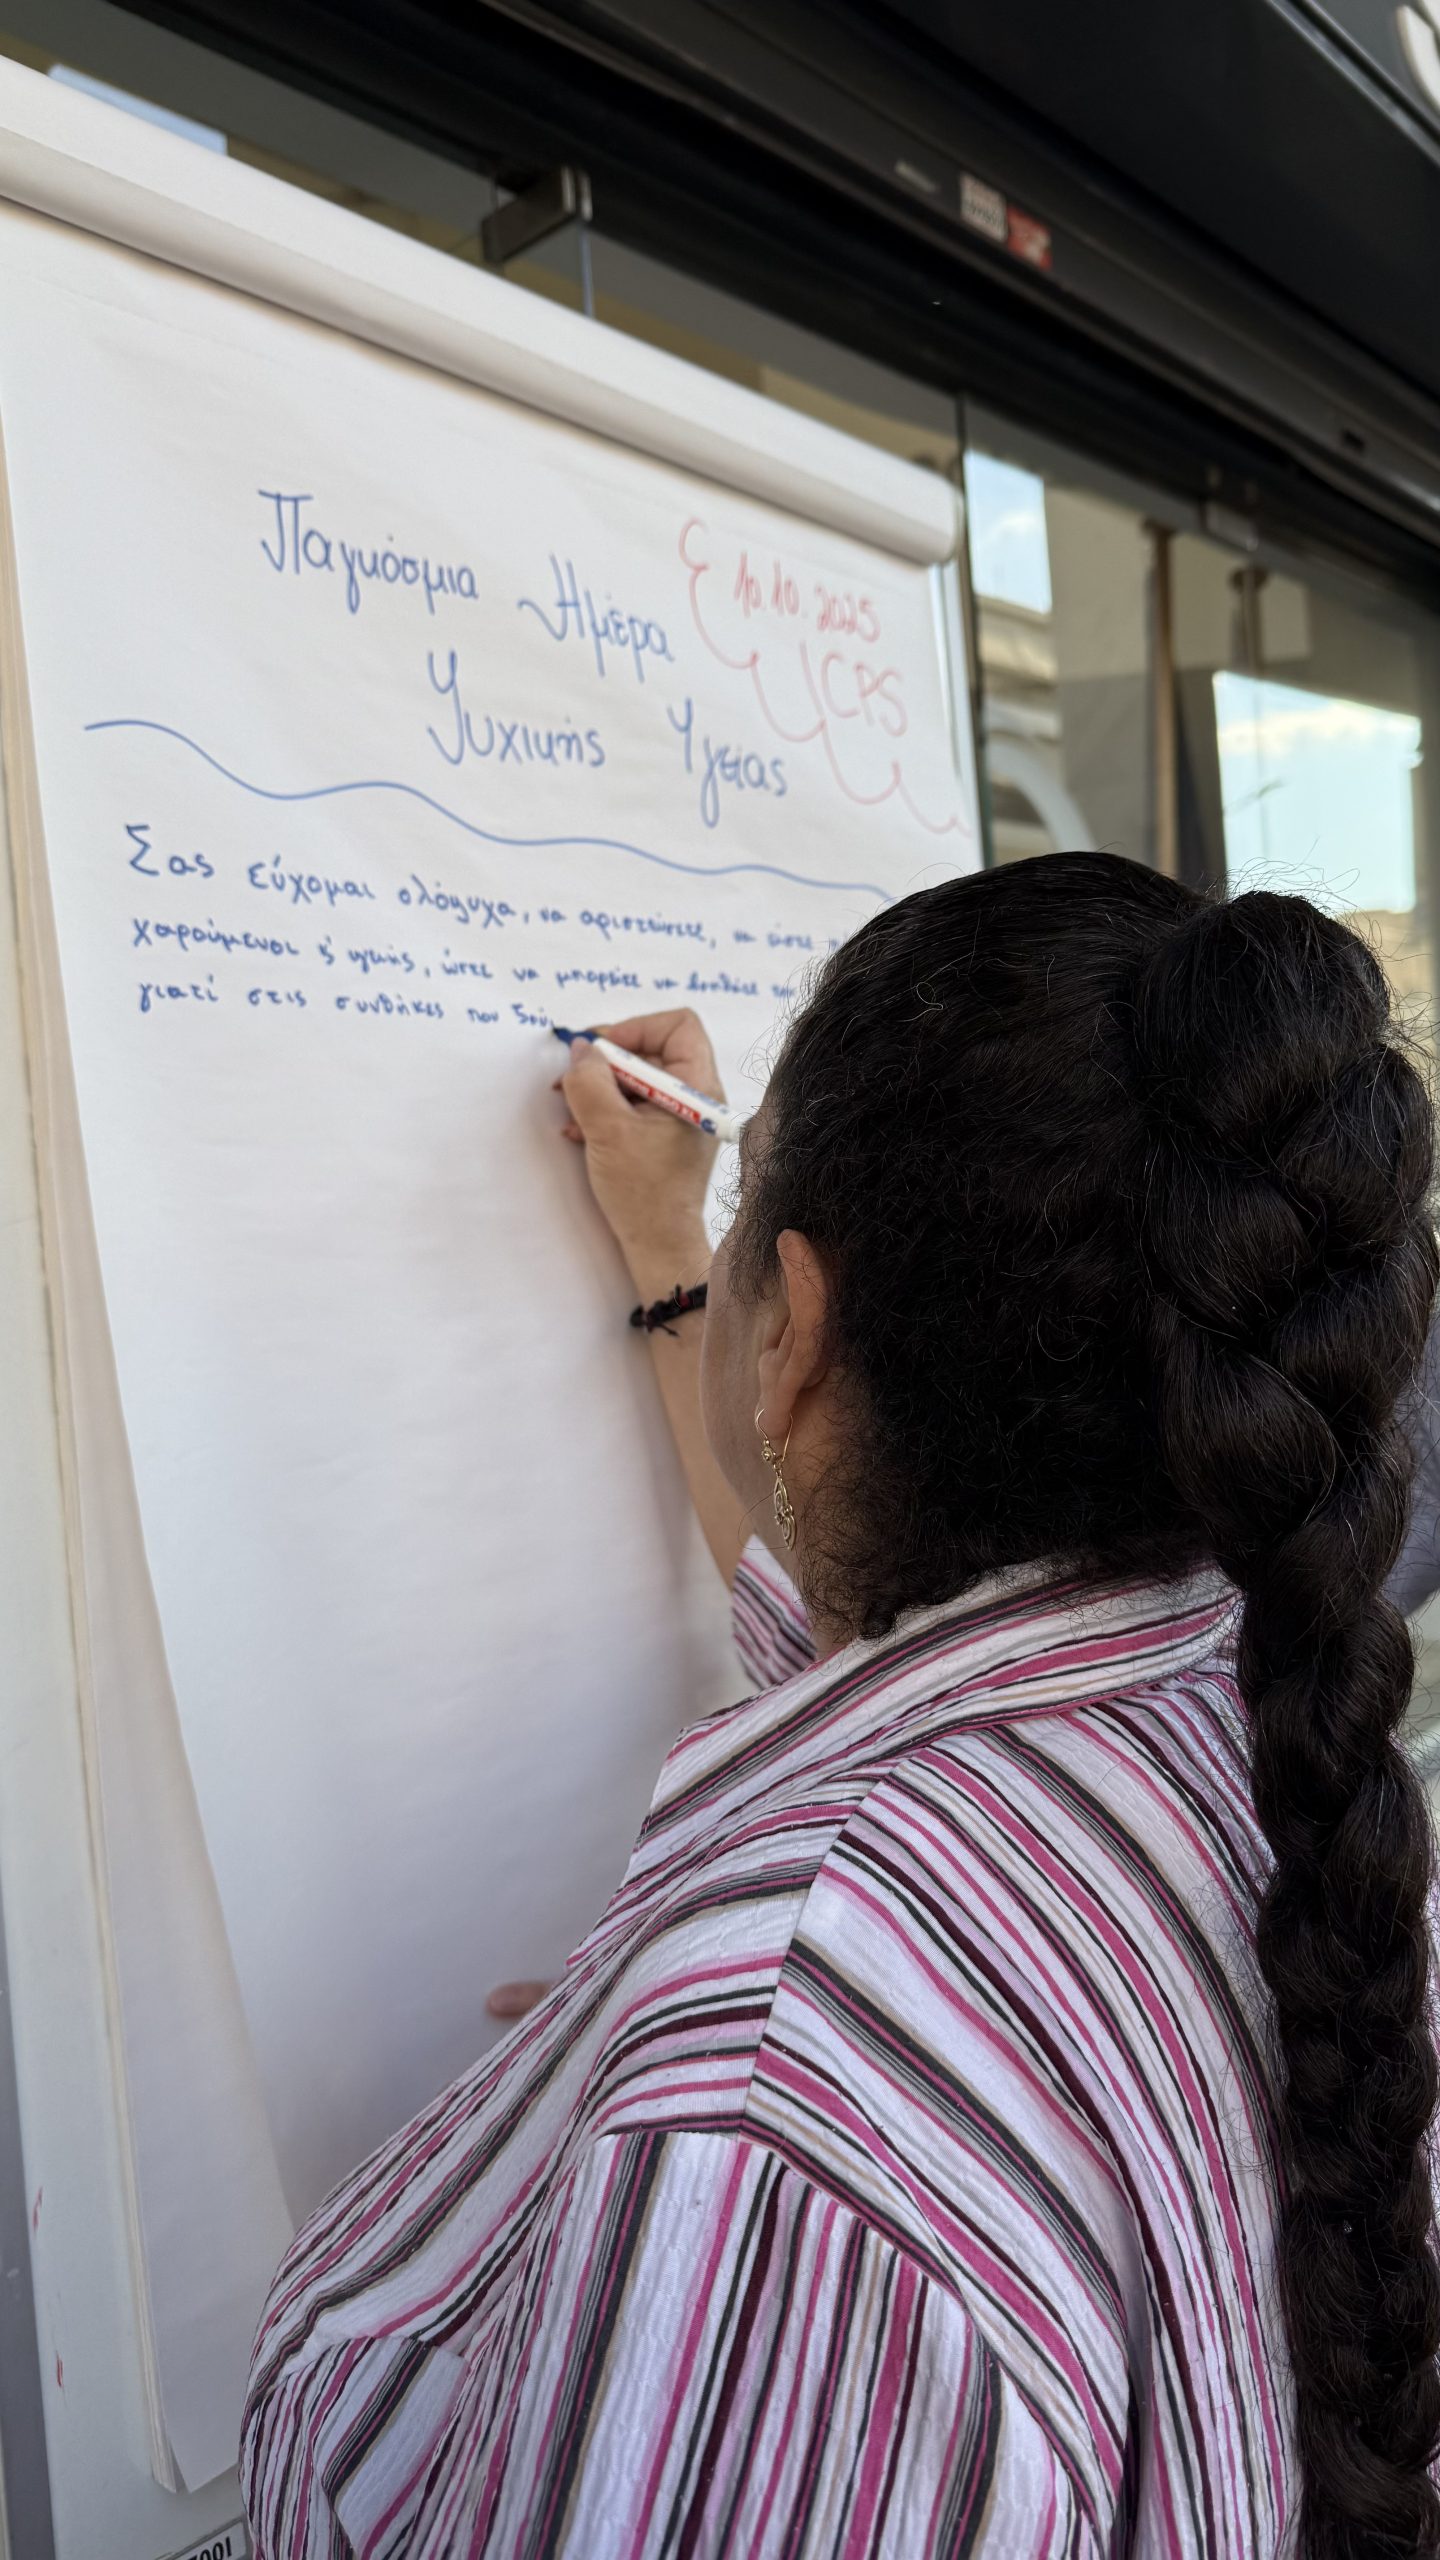 Παγκόσμια Ημέρα
Ψυχικής Υγείας
10.10.2025
ICPS
Σας εύχομαι ολόψυχα, να αριστεύσετε, να είστε
χαρούμενοι & υγιής, ώστε να μπορείτε να βοηθάτε
γιατί στις συνθήκες που ζού